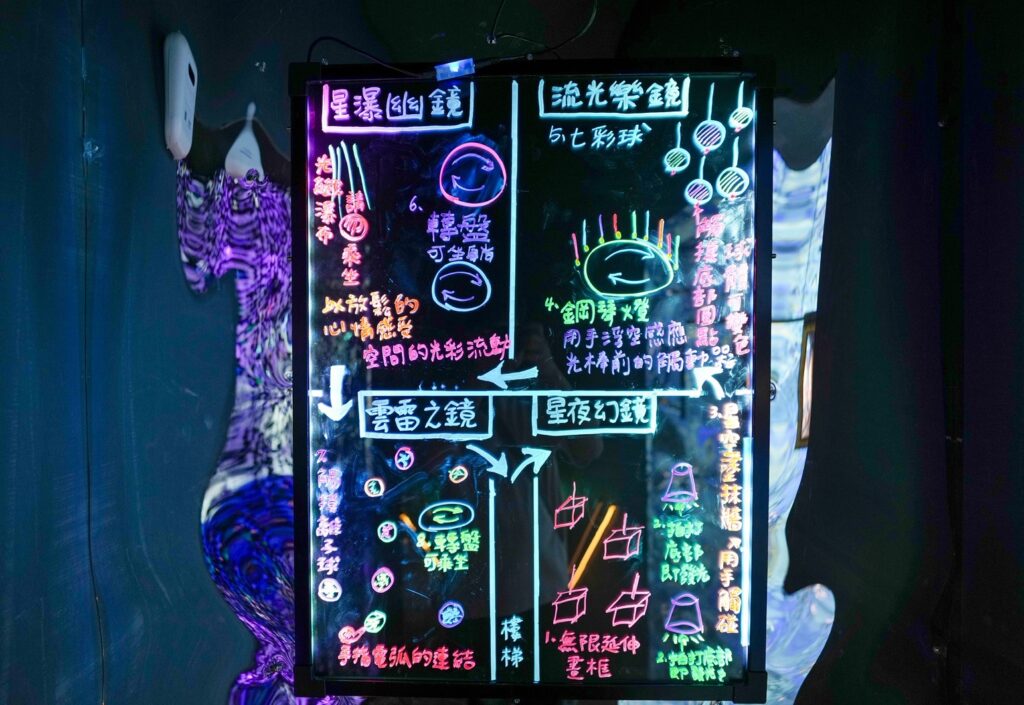 星瀑幽鏡
光纖瀑布
請勿乘坐
6、
轉盤
可坐
以放鬆的
心情感受
空間的光彩流動
流光樂鏡
5、七彩球
觸撞底部圓點
球體有變色
4、鋼琴燈
用手浮空感應
光棒前的觸動
雲雷之鏡
7、觸撞離子球
8、轉盤
可乘坐
手指電弧的連結
樓梯
星夜幻鏡
3、星空塗抹牆
用手觸碰
2、拍打
底部
即發光
1、無限延伸
畫框
2、拍打底部
即發光